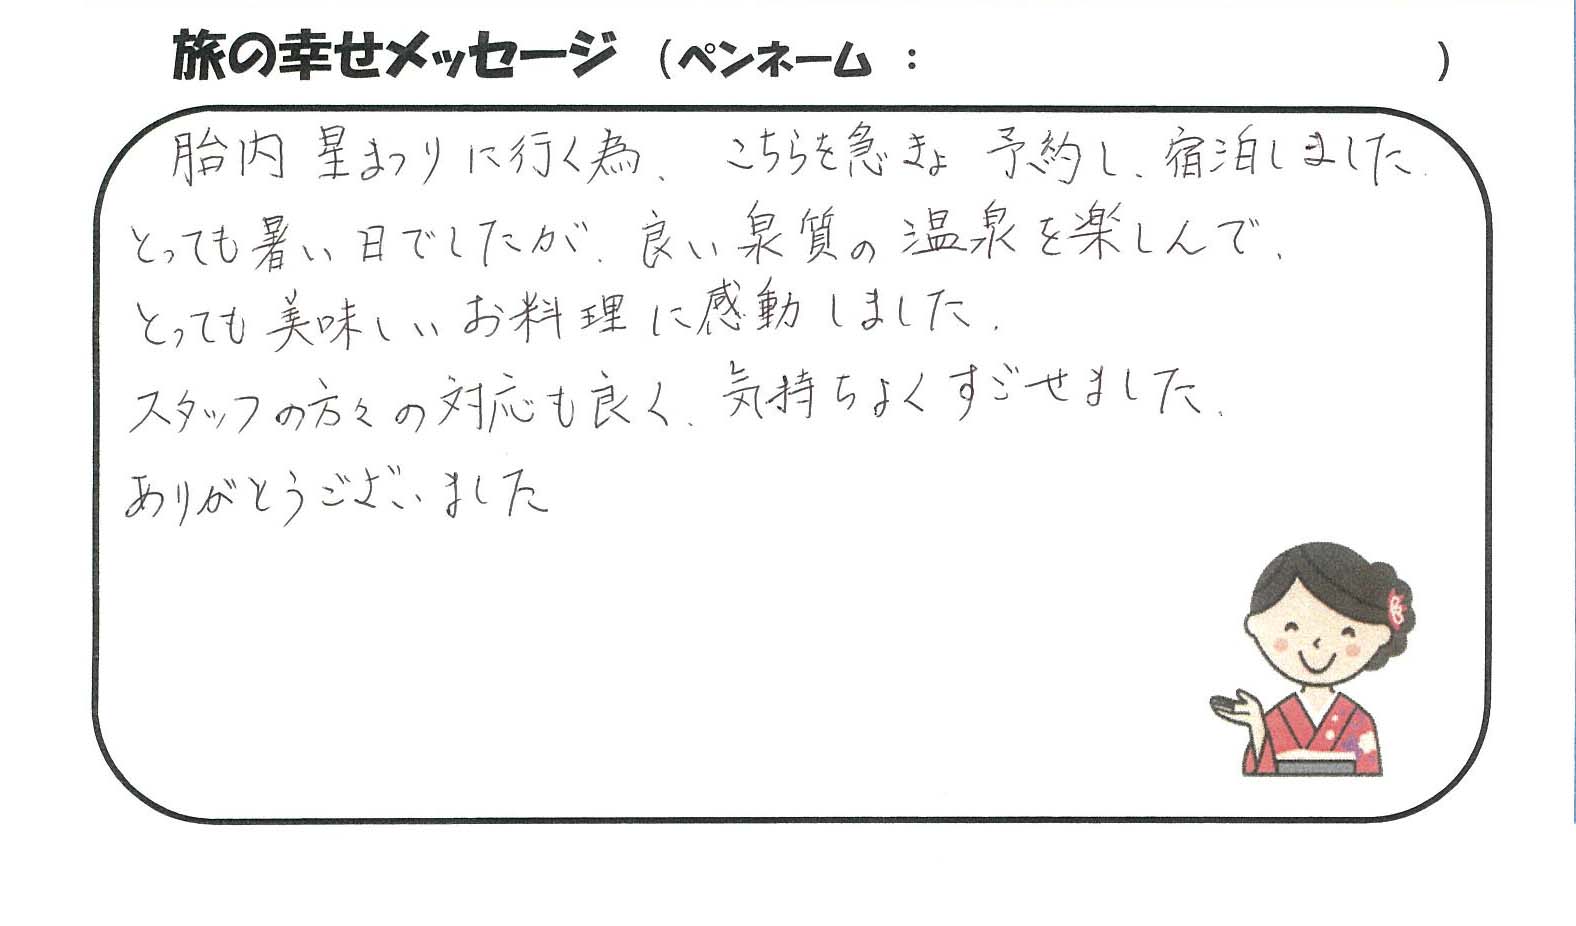 旅の幸せメッセージ （ペンネーム ： ）
胎内 星まつりに行く為、こちらを急きょ 予約し、宿泊しました。
とっても暑い日でしたが、良い泉質の温泉を楽しんで、
とっても美味しいお料理に感動しました。
スタッフの方々の対応も良く、気持ちよくすごせました。
ありがとうございました